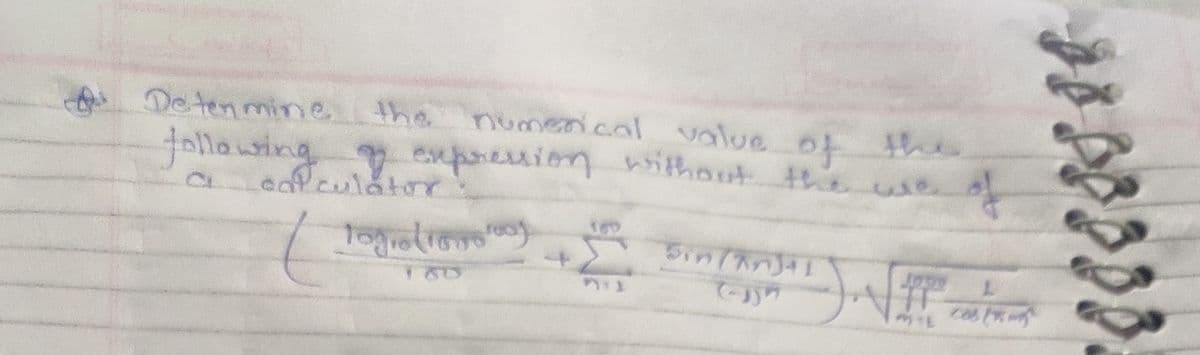 Q: Determine the numerical value of the
following expression without the use of
a calculator:
( log₁₀(1000¹⁰⁰) / 100 + Σ_{n=1}^{100} sin(πn)+1 / (-1)ⁿ ) . √∏_{m=1}^{1000} 1 / cos(πm)²